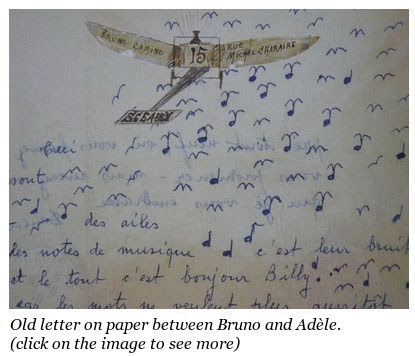 BRUNO CAMINO
15
RUE
MICHEL CHARAIRE
SCEAUX
Ceci
sont
des ailes
des notes de musique c'est leur bruit
et le tout c'est bonjour Billy!
car les mots ne veulent plus aussitôt
Old letter on paper between Bruno and Adèle.
(click on the image to see more)